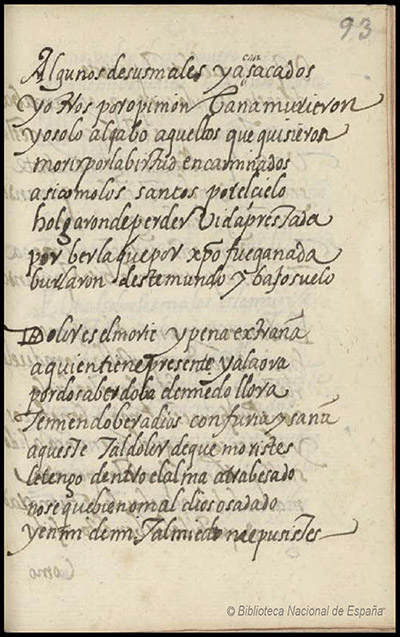 93
Algunos desusmales yacansacados
yotros poropinion Vana murieron
yosolo alabo aquellos que quisieron
morir por labirtud encaminados
asicomolos santos porelcielo
holgaronde perder Vidaprestada
por berlaquepor xpo fue ganada
burlaron destemundo y bajo suelo
Dolor es el morir ypena extraña
aquientiene presente yalaora
pordo saber doba demiedo llora
temiendo ber adios confuria y saña
aqueste tal dolor deque moristes
letengo dentro elalma atrabesado
nose quebien o mal dios os a dado
yenmi demi tal miedo mepusistes
Como
© Biblioteca Nacional de España